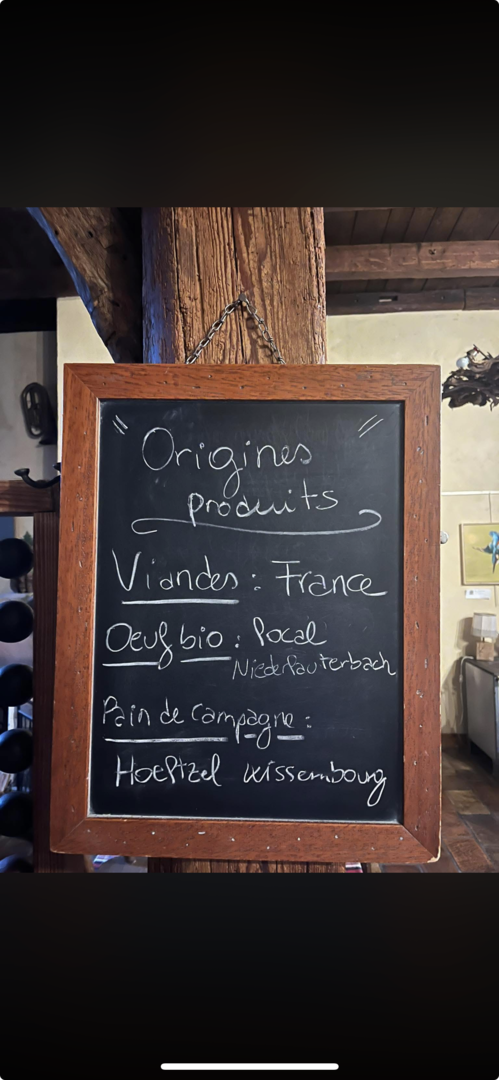 " Origines "
produits
Viandes : France
Oeuf bio : local
Niederlauterbach
Pain de campagne :
Hoeltzel Wissembourg